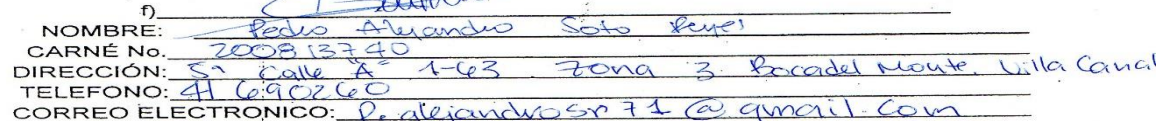 f)
NOMBRE: Pedro Alejandro Soto Reyes
CARNÉ No. 200813740
DIRECCIÓN: 5ª Calle "A" 1-63 Zona 3 Boca del Monte, Villa Canal
TELEFONO: 41690260
CORREO ELECTRONICO: P.alejandrosr71@gmail.com